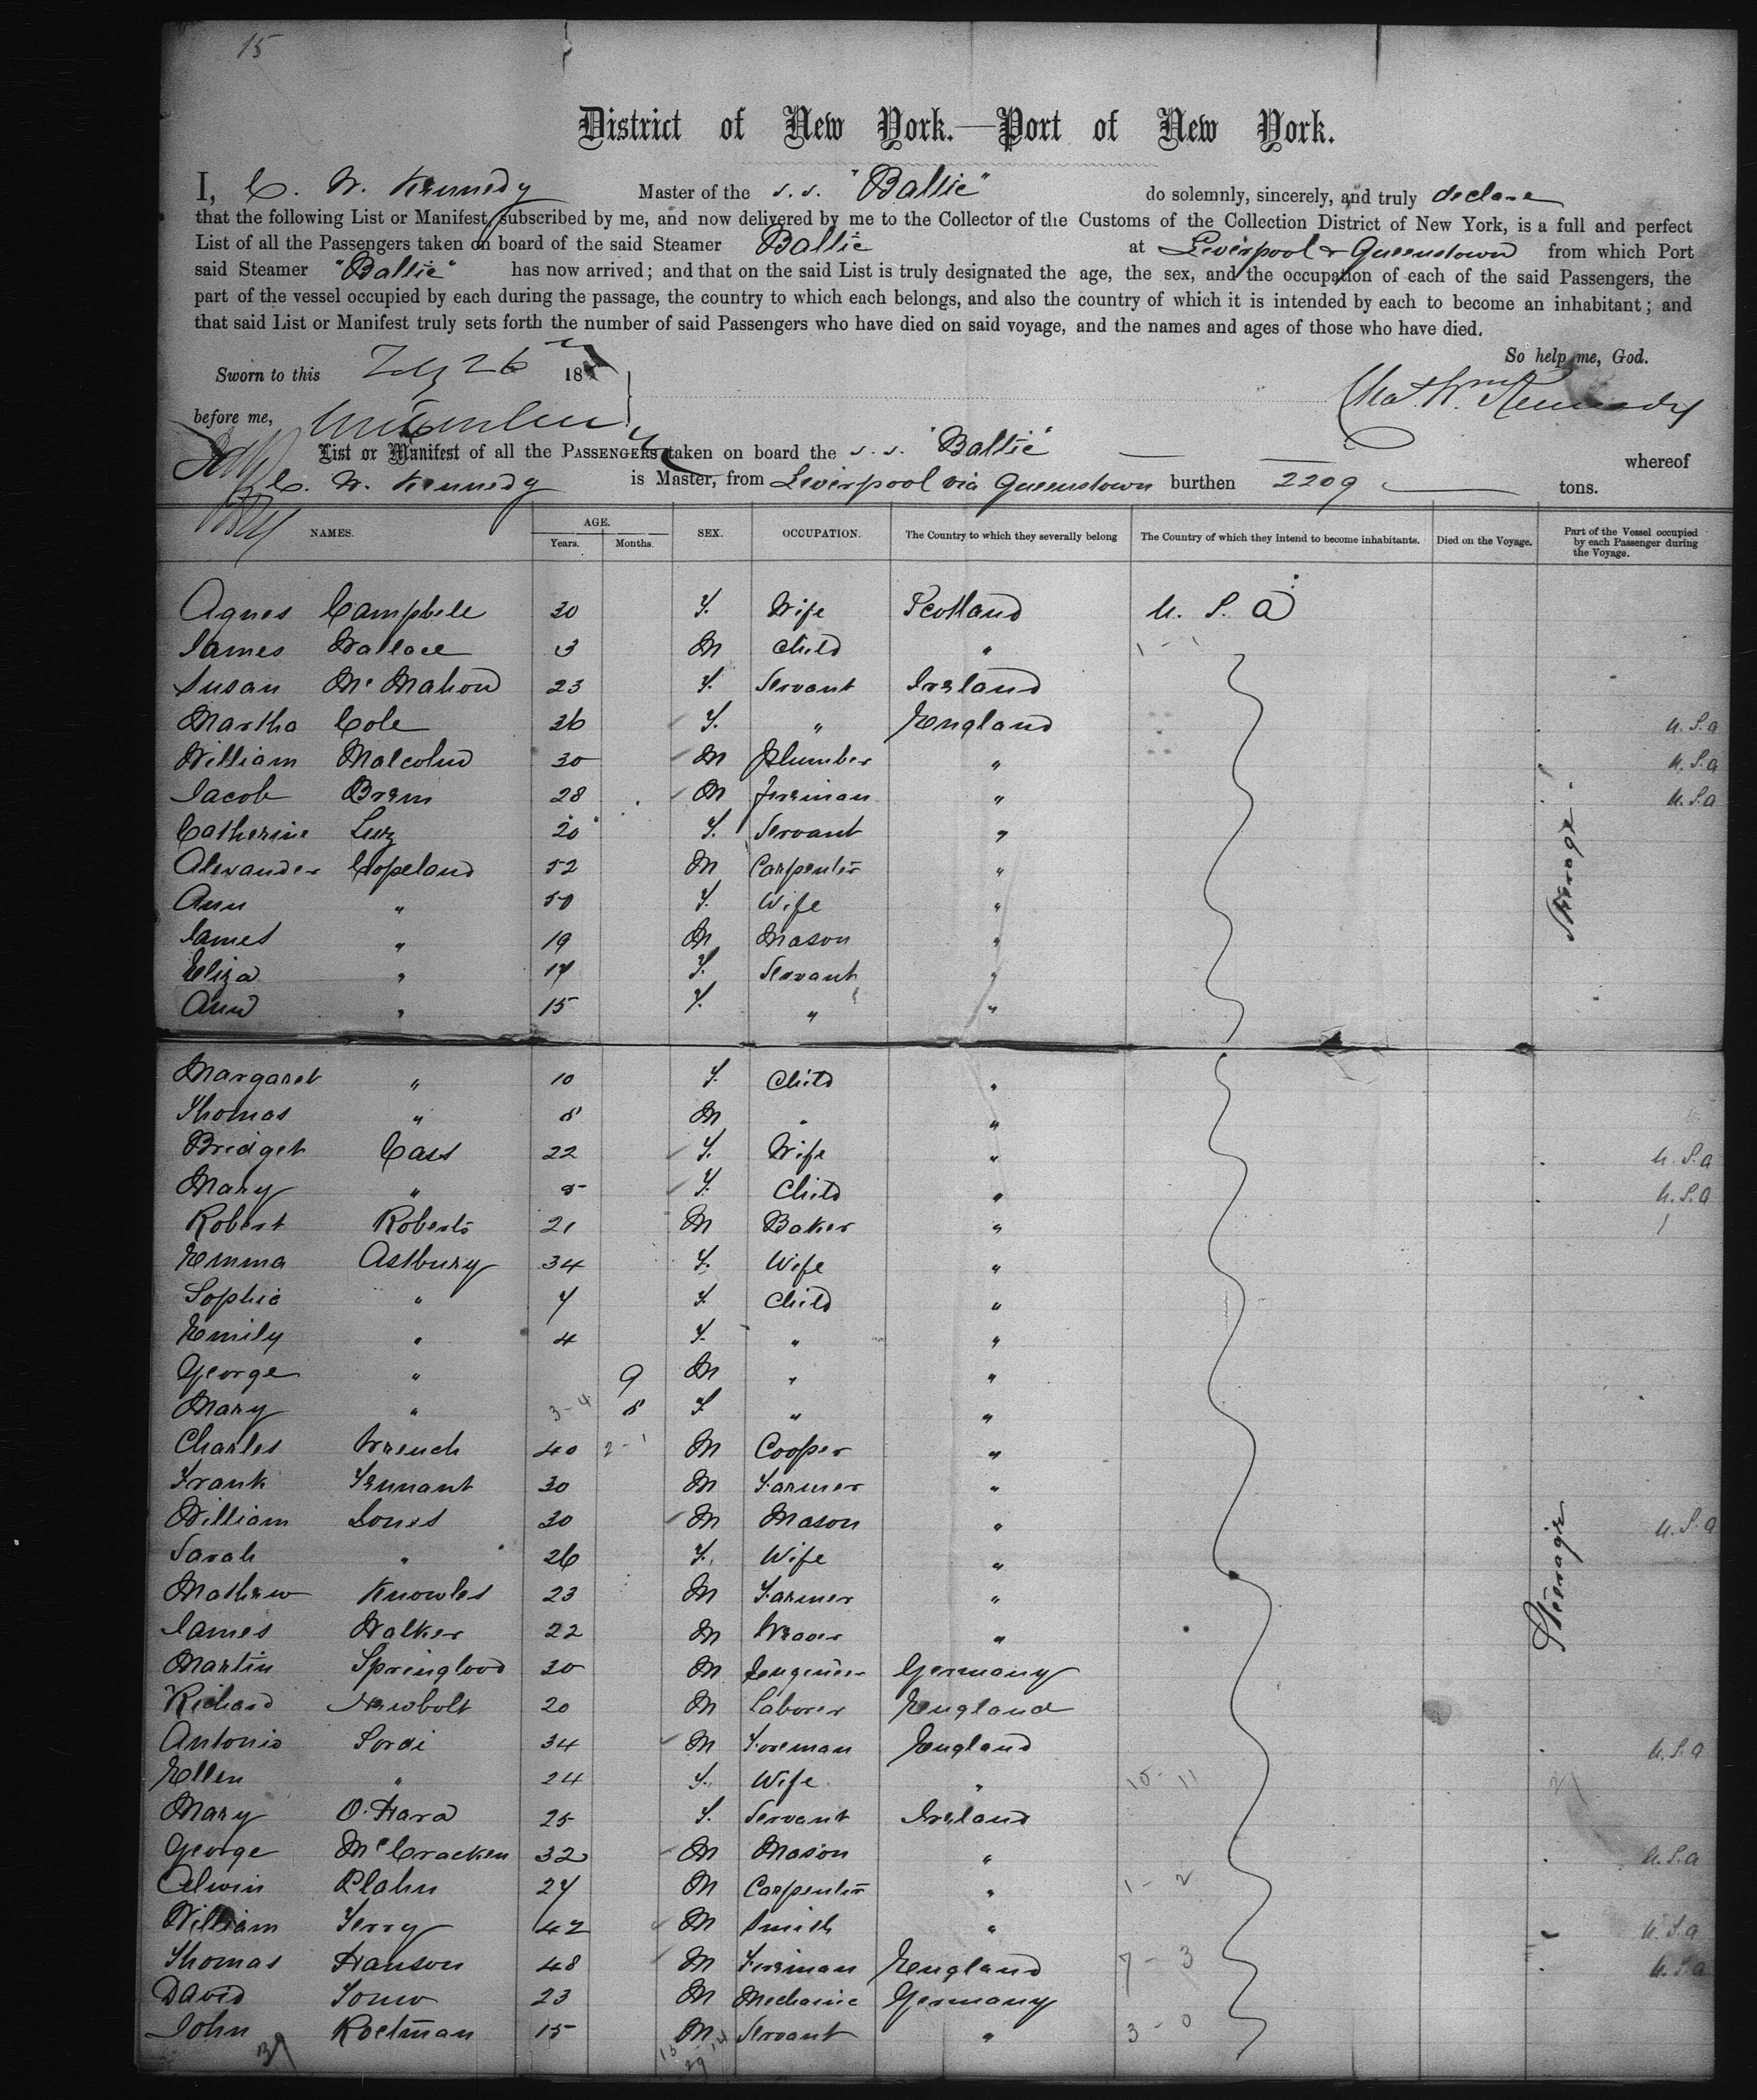 15
District of New York.—Port of New York.
I, C. W. Kennedy Master of the s.s. "Baltic" do solemnly, sincerely, and truly declare
that the following List or Manifest, subscribed by me, and now delivered by me to the Collector of the Customs of the Collection District of New York, is a full and perfect
List of all the Passengers taken on board of the said Steamer Baltic at Liverpool & Queenstown from which Port
said Steamer "Baltic" has now arrived; and that on the said List is truly designated the age, the sex, and the occupation of each of the said Passengers, the
part of the vessel occupied by each during the passage, the country to which each belongs, and also the country of which it is intended by each to become an inhabitant; and
that said List or Manifest truly sets forth the number of said Passengers who have died on said voyage, and the names and ages of those who have died.
So help me, God.
Sworn to this 26 18
Chas Wm Kennedy
before me,
List or Manifest of all the PASSENGERS taken on board the s.s. "Baltic" whereof
C. W. Kennedy is Master, from Liverpool via Queenstown burthen 2209 tons.
NAMES. AGE. Years. Months. SEX. OCCUPATION. The Country to which they severally belong The Country of which they intend to become inhabitants. Died on the Voyage. Part of the Vessel occupied by each Passenger during the Voyage.
Agnes Campbell 30 F. Wife Scotland U. S. A
James Wallace 3 M Child " 1 - 1
Susan McMahon 23 F. Servant Ireland
Martha Cole 36 F. " England U.S.a
William Malcolm 30 M Plumber " U.S.a
Jacob Brem 28 M Fireman " U.S.a
Catherine 20 F. Servant "
Alexander Copeland 52 M Carpenter "
Ann " 50 F. Wife "
James " 19 M Mason "
Eliza " 17 F. Servant "
Ann " 15 F. " "
Steerage
Margaret " 10 F. Child "
Thomas " 8 M " "
Bridget Cass 22 F. Wife " U.S.a
Mary " F. Child " U.S.a
Robert Roberts 21 M Baker "
Emma Astbury 34 F. Wife "
Sophie " 7 F. Child "
Emily " 4 F. " "
George " 9 M " "
Mary " 3-4 8 F " "
Charles Wrench 40 2-1 M Cooper "
Frank Tennant 30 M Farmer "
William Jones 30 M Mason " U.S.a
Sarah " 26 F. Wife "
Mathew Knowles 23 M Farmer "
James Walker 22 M Weaver "
Steerage
Martin 30 M Engineer Germany
Richard Newbolt 20 M Laborer England
Antonio Sordi 34 M Foreman England U.S.a
Ellen " 24 F. Wife " 15 - 11
Mary O'Hara 25 F. Servant Ireland
George McCracken 32 M Mason " U.S.a
Alwin Plahn 27 M Carpenter " 1 - 2
William Terry 42 M Smith " U.S.a
Thomas Hanson 48 M Fireman England 7 - 3 U.S.a
David 23 M Mechanic Germany
John Roelman 15 M Servant " 3 - 0
39